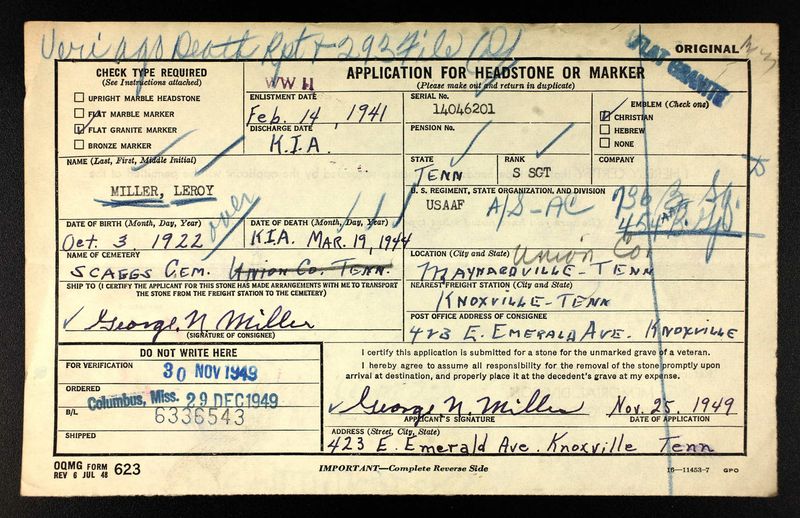 Veri ago Death Rpt + 293 File
FLAT GRANITE
ORIGINAL
CHECK TYPE REQUIRED
(See Instructions attached)
UPRIGHT MARBLE HEADSTONE
FLAT MARBLE MARKER
FLAT GRANITE MARKER
BRONZE MARKER
WW II
APPLICATION FOR HEADSTONE OR MARKER
(Please make out and return in duplicate)
ENLISTMENT DATE
Feb. 14, 1941
DISCHARGE DATE
K.I.A.
SERIAL No.
14046201
PENSION No.
EMBLEM (Check one)
CHRISTIAN
HEBREW
NONE
NAME (Last, First, Middle Initial)
MILLER, LEROY
STATE
TENN
RANK
S SGT
COMPANY
U. S. REGIMENT, STATE ORGANIZATION, AND DIVISION
USAAF A/S-AC 736 B. Sq.
454
over
DATE OF BIRTH (Month, Day, Year)
Oct. 3, 1922
DATE OF DEATH (Month, Day, Year)
K.I.A. MAR. 19, 1944
NAME OF CEMETERY
SCAGGS CEM. UNION CO. TENN.
LOCATION (City and State)
Union Co.
MAYNARDVILLE-TENN
SHIP TO (I CERTIFY THE APPLICANT FOR THIS STONE HAS MADE ARRANGEMENTS WITH ME TO TRANSPORT
THE STONE FROM THE FREIGHT STATION TO THE CEMETERY)
George N. Miller
(SIGNATURE OF CONSIGNEE)
NEAREST FREIGHT STATION (City and State)
KNOXVILLE-TENN
POST OFFICE ADDRESS OF CONSIGNEE
423 E. EMERALD AVE. KNOXVILLE
DO NOT WRITE HERE
FOR VERIFICATION
30 NOV 1949
ORDERED
Columbus, Miss. 29 DEC 1949
B/L
6336543
SHIPPED
I certify this application is submitted for a stone for the unmarked grave of a veteran.
I hereby agree to assume all responsibility for the removal of the stone promptly upon
arrival at destination, and properly place it at the decedent's grave at my expense.
George N. Miller Nov. 25, 1949
APPLICANT'S SIGNATURE DATE OF APPLICATION
ADDRESS (Street, City, State)
423 E. Emerald Ave. Knoxville Tenn
OQMG FORM 623
REV 6 JUL 48
IMPORTANT—Complete Reverse Side
16—11453-7 GPO